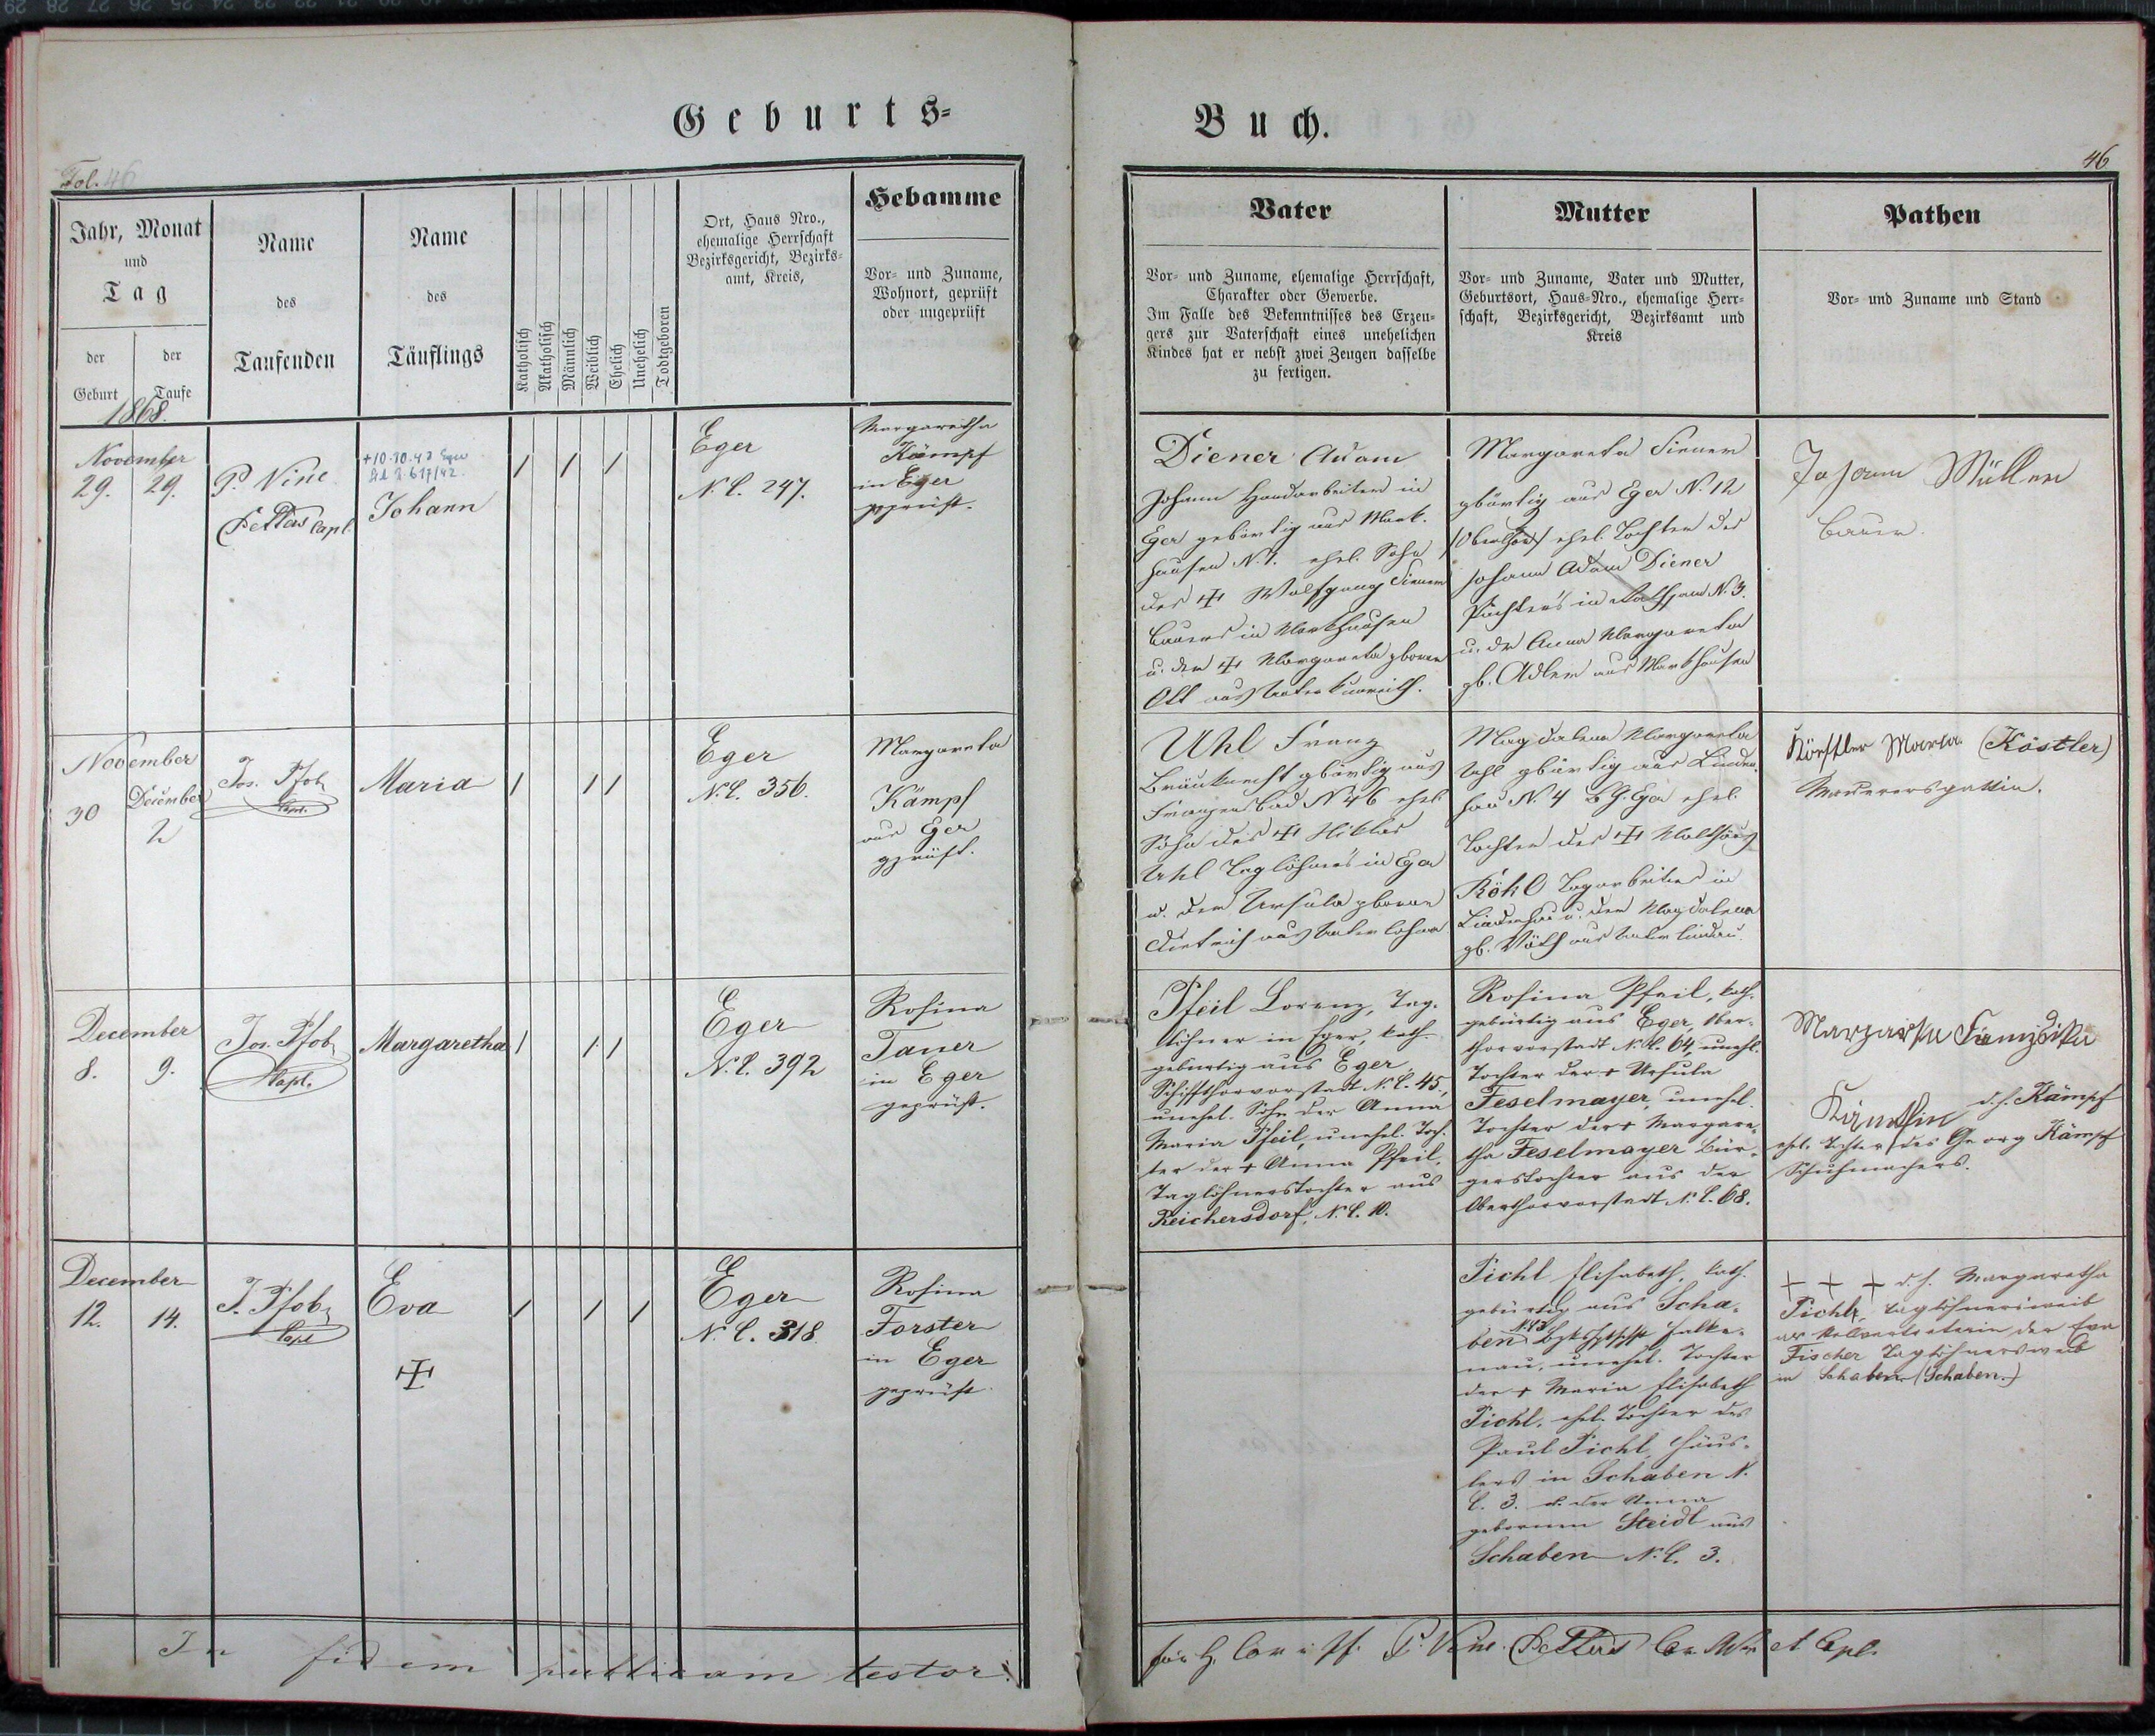 Geburts-
Buch.
Fol. 46
46
Jahr, Monat
und
Tag
der
Geburt
der
Taufe
1868.
Name
des
Taufenden
Name
des
Täuflings
Katholisch
Akatholisch
Männlich
Weiblich
Ehelich
Unehelich
Todtgeboren
Ort, Haus Nro.,
ehemalige Herrschaft
Bezirksgericht, Bezirks-
amt, Kreis,
Hebamme
Vor- und Zuname,
Wohnort, geprüft
oder ungeprüft
Vater
Vor- und Zuname, ehemalige Herrschaft,
Charakter oder Gewerbe.
Im Falle des Bekenntnisses des Erzeu-
gers zur Vaterschaft eines unehelichen
Kindes hat er nebst zwei Zeugen dasselbe
zu fertigen.
Mutter
Vor- und Zuname, Vater und Mutter,
Geburtsort, Haus-Nro., ehemalige Herr-
schaft, Bezirksgericht, Bezirksamt und
Kreis
Pathen
Vor- und Zuname und Stand
November
29. 29.
P. Vinc
Pettas Capl.
+10.10.43 Eger
617/42
Johann
/ / /
Eger
N.C. 247.
Margaretha
Kämpf
in Eger
geprüft.
Diener Adam
Johann Handarbeiter in
Eger gebürtig aus Mark-
hausen N. 1. ehel. Sohn
des + Wolfgang Diener
Bauers in Markhausen
u. der + Margareta geborne
Ott aus Unterkunreith.
Margareta Diener
gebürtig aus Eger N. 12
ehel. Tochter des
Johann Adam Diener
Pächters in N. 3.
u. der Anna Margareta
gb. Adler aus Markhausen
Johann Müller
Bauer.
November
30
December
2
Jos. Pfob
Capl.
Maria
/ / /
Eger
N.C. 356.
Margareta
Kämpf
aus Eger
geprüft.
Uhl Franz
Bräuknecht gebürtig aus
Franzensbad N 46 ehel.
Sohn des + Niklas
Uhl Taglöhners in Eger
u. der Ursula geborne
Dietrich aus Unterlohma
Magdalena Margareta
Uhl gebürtig aus Linden-
hau N. 4 BG. Eger ehel.
Tochter des + Mathäus
Köhl Tagarbeiter in
Lindenhau u. der Magdalena
gb. Völk aus Unterlindau.
Körstler Maria (Köstler)
Maurersgattin.
December
8. 9.
Jos. Pfob
Capl.
Margaretha
/ / /
Eger
N.C. 392
Rosina
Taner
in Eger
geprüft.
Pfeil Lorenz, Tag-
löhner in Eger, kath.
gebürtig aus Eger,
Schiffthorvorstadt N.C. 45,
unehel. Sohn der Anna
Maria Pfeil, unehel. Toch-
ter der + Anna Pfeil,
Taglöhnerstochter aus
Reichersdorf, N.C. 10.
Rosina Pfeil, kath.
gebürtig aus Eger, Ober-
thorvorstadt N.C. 64, unehl.
Tochter der + Ursula
Feselmayer, unehel.
Tochter der + Margare-
tha Feselmayer Bür-
gerstochter aus der
Oberthorvorstadt N.C. 68.
d. h. Kämpf
ehel. Tochter des Georg Kämpf
Schuhmachers.
December
12. 14.
J. Pfob
Capl
Eva
+
/ / /
Eger
N.C. 318
Rosina
Forster
in Eger
geprüft.
Pichl Elisabeth, kath.
gebürtig aus Scha-
ben N. 3, Falke-
nau, unehel. Tochter
der + Maria Elisabeth
Pichl, ehel. Tochter des
Paul Pichl, Häus-
lers in Schaben N.
C. 3. u. der Anna
gebornen Steidl aus
Schaben N.C. 3.
+ + + d. h. Margaretha
Pichl, Taglöhnersweib
als Stellvertreterin der Eva
Fischer Taglöhnersweib
in Schaben (Schaben.)
In fidem publicam testor:
P. Vinc. Pettas et Capl.